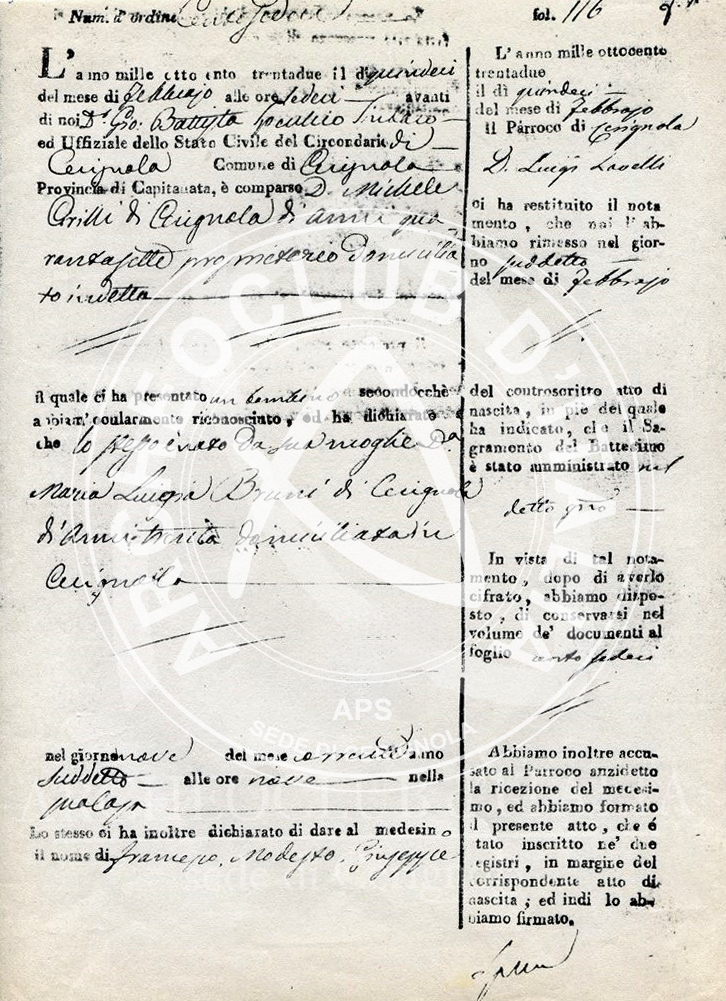 Num. d'ordine Centosedici
fol. 116
L'anno mille otto ento trentadue il dì quindeci
del mese di Febbrajo alle ore sedeci avanti
di noi D. Gio: Battista Sindaco
ed Uffiziale dello Stato Civile del Circondario di
Cerignola Comune di Cerignola
Provincia di Capitanata, è comparso D. Michele
Cirilli di Cerignola di anni qua
rantasette proprietario domicilia
to in detta
il quale ci ha presentato un bambino secondocchè
abbiam' ocularmente riconosciuto, ed ha dichiarato
che lo stesso è nato da sua moglie D.a
Maria Luigia Bruni di Cerignola
di anni trenta domiciliata in
Cerignola
nel giorno nove del mese corrente anno
suddetto alle ore nove nella
Lo stesso ci ha inoltre dichiarato di dare al medesimo
il nome di Francesco, Modesto, Giuseppe
L'anno mille ottocento
trentadue
il dì quindeci
del mese di Febbrajo
il Parroco di Cerignola
D. Luigi
ci ha restituito il nota
mento, che noi l'ab-
biamo rimesso nel gior-
no suddetto
del mese di Febbrajo
del controscritto atto di
nascita, in piè del quale
ha indicato, che il Sa-
gramento del Battesimo
è stato amministrato nel
detto gno
In vista di tal nota-
mento, dopo di averlo
cifrato, abbiamo dispo-
sto, di conservarsi nel
volume de' documenti al
foglio cento sedeci
Abbiamo inoltre accu-
sato al Parroco anzidetto
la ricezione del medesi-
mo, ed abbiamo formato
il presente atto, che è
stato inscritto ne' due
registri, in margine del
corrispondente atto di
nascita; ed indi lo ab-
biamo firmato.
ARCHEOCLUB D'ITALIA
APS
SEDE DI CERIGNOLA